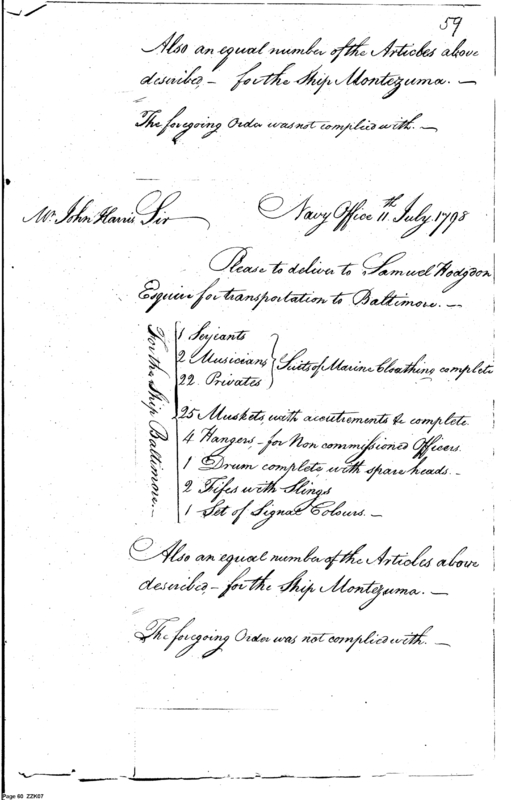 59
Also an equal number of the Articles above
described,- for the Ship Montezuma. -
The foregoing Order was not complied with. -
Mr. John Harris Sir Navy Office 11th July. 1798
Please to deliver to Samuel Hodgdon
Esquire for transportation to Baltimore. -
For the Ship Baltimore. -
1 Serjeants
2 Musicians } Suits of Marine Cloathing complete
22 Privates
25 Muskets, with accutrements &c complete
4 Hangers, - for Non commissioned Officers.
1 Drum complete with spare heads. -
2 Fifes with Slings
1 Set of Signal Colours. -
Also an equal number of the Articles above
described - for the Ship Montezuma. -
The foregoing Order was not complied with. -
Page 60 ZZK07